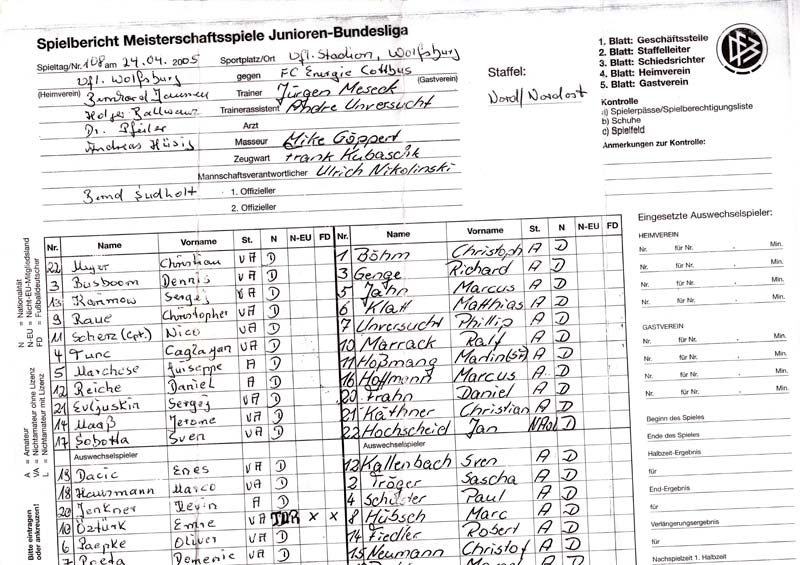 Spielbericht Meisterschaftsspiele Junioren-Bundesliga
Spieltag/Nr. 108 am 24.04.2005 Sportplatz/Ort Vfl. Stadion, Wolfsburg
Vfl. Wolfsburg gegen FC Energie Cottbus
(Heimverein) (Gastverein)
Bernhard Trainer Jürgen Meseck
Holger Ballwanz Trainerassistent Andre Unversucht
Dr. Pfeiler Arzt
Andreas Hüsig Masseur Mike Göppert
Zeugwart Frank Kubaschk
Mannschaftsverantwortlicher Ulrich Nikolinski
Bernd Sudholt 1. Offizieller
2. Offizieller
Staffel:
Nord/Nordost
1. Blatt: Geschäftsstelle
2. Blatt: Staffelleiter
3. Blatt: Schiedsrichter
4. Blatt: Heimverein
5. Blatt: Gastverein
DFB
Kontrolle
a) Spielerpässe/Spielberechtigungsliste
b) Schuhe
c) Spielfeld
Anmerkungen zur Kontrolle:
N = Nationalität
N-EU = Nicht-EU-Mitgliedsland
FD = Fußballdeutscher
A = Amateur
VA = Nichtamateur ohne Lizenz
L = Nichtamateur mit Lizenz
Bitte eintragen
oder ankreuzen!
Nr. Name Vorname St. N N-EU FD Nr. Name Vorname St. N N-EU FD
22 Meyer Christian VA D 1 Böhm Christoph A D
3 Busboom Dennis VA D 3 Genge Richard A D
13 Karimow Sergej VA D 5 Jahn Marcus A D
9 Raue Christopher VA D 6 Klatt Matthias A D
11 Scherz (Cpt.) Nico VA D 7 Unversucht Phillip A D
4 Tunc Caglayan VA D 10 Marrack Ralf A D
5 Marchese Guiseppe A D 11 Hoßmang Martin (SF) A D
12 Reiche Daniel A D 16 Hoffmann Marcus A D
21 Evljuskin Sergej VA D 20 Frahn Daniel A D
14 Maaß Jerome VA D 21 Käthner Christian A D
17 Sobotta Sven VA D 22 Hochscheid Jan D
Auswechselspieler Auswechselspieler
19 Dacic Enes VA D 12 Kallenbach Sven A D
18 Hausmann Marco VA D 2 Tröger Sascha A D
20 Jenkner Kevin A D 4 Schlüter Paul A D
10 Öztürk Emre VA TUR x x 8 Hübsch Marc A D
6 Paepke Oliver VA D 14 Fiedler Robert A D
7 Domenic VA D 15 Neumann Christof A D
Eingesetzte Auswechselspieler:
HEIMVEREIN
Nr. für Nr. . Min.
Nr. für Nr. . Min.
Nr. für Nr. . Min.
Nr. für Nr. . Min.
GASTVEREIN
Nr. für Nr. . Min.
Nr. für Nr. . Min.
Nr. für Nr. . Min.
Nr. für Nr. . Min.
Beginn des Spieles
Ende des Spieles
Halbzeit-Ergebnis
für
End-Ergebnis
für
Verlängerungsergebnis
für
Nachspielzeit 1. Halbzeit